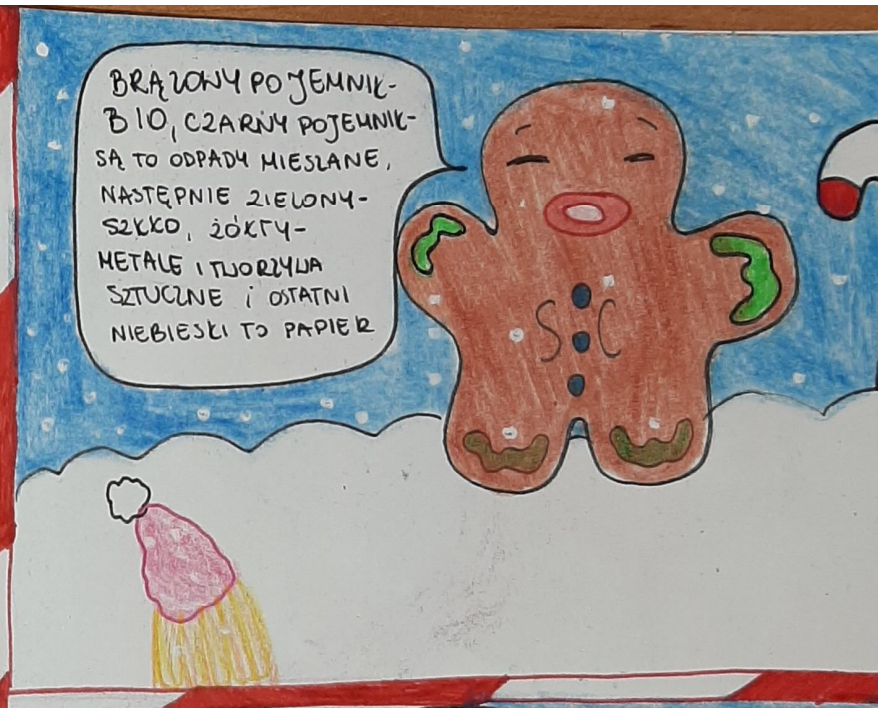 BRĄZOWY POJEMNIK-
BIO, CZARNY POJEMNIK-
SĄ TO ODPADY MIESZANE,
NASTĘPNIE ZIELONY-
SZKŁO, ŻÓŁTY-
METALE I TWORZYWA
SZTUCZNE i OSTATNI
NIEBIESKI TO PAPIER
S C